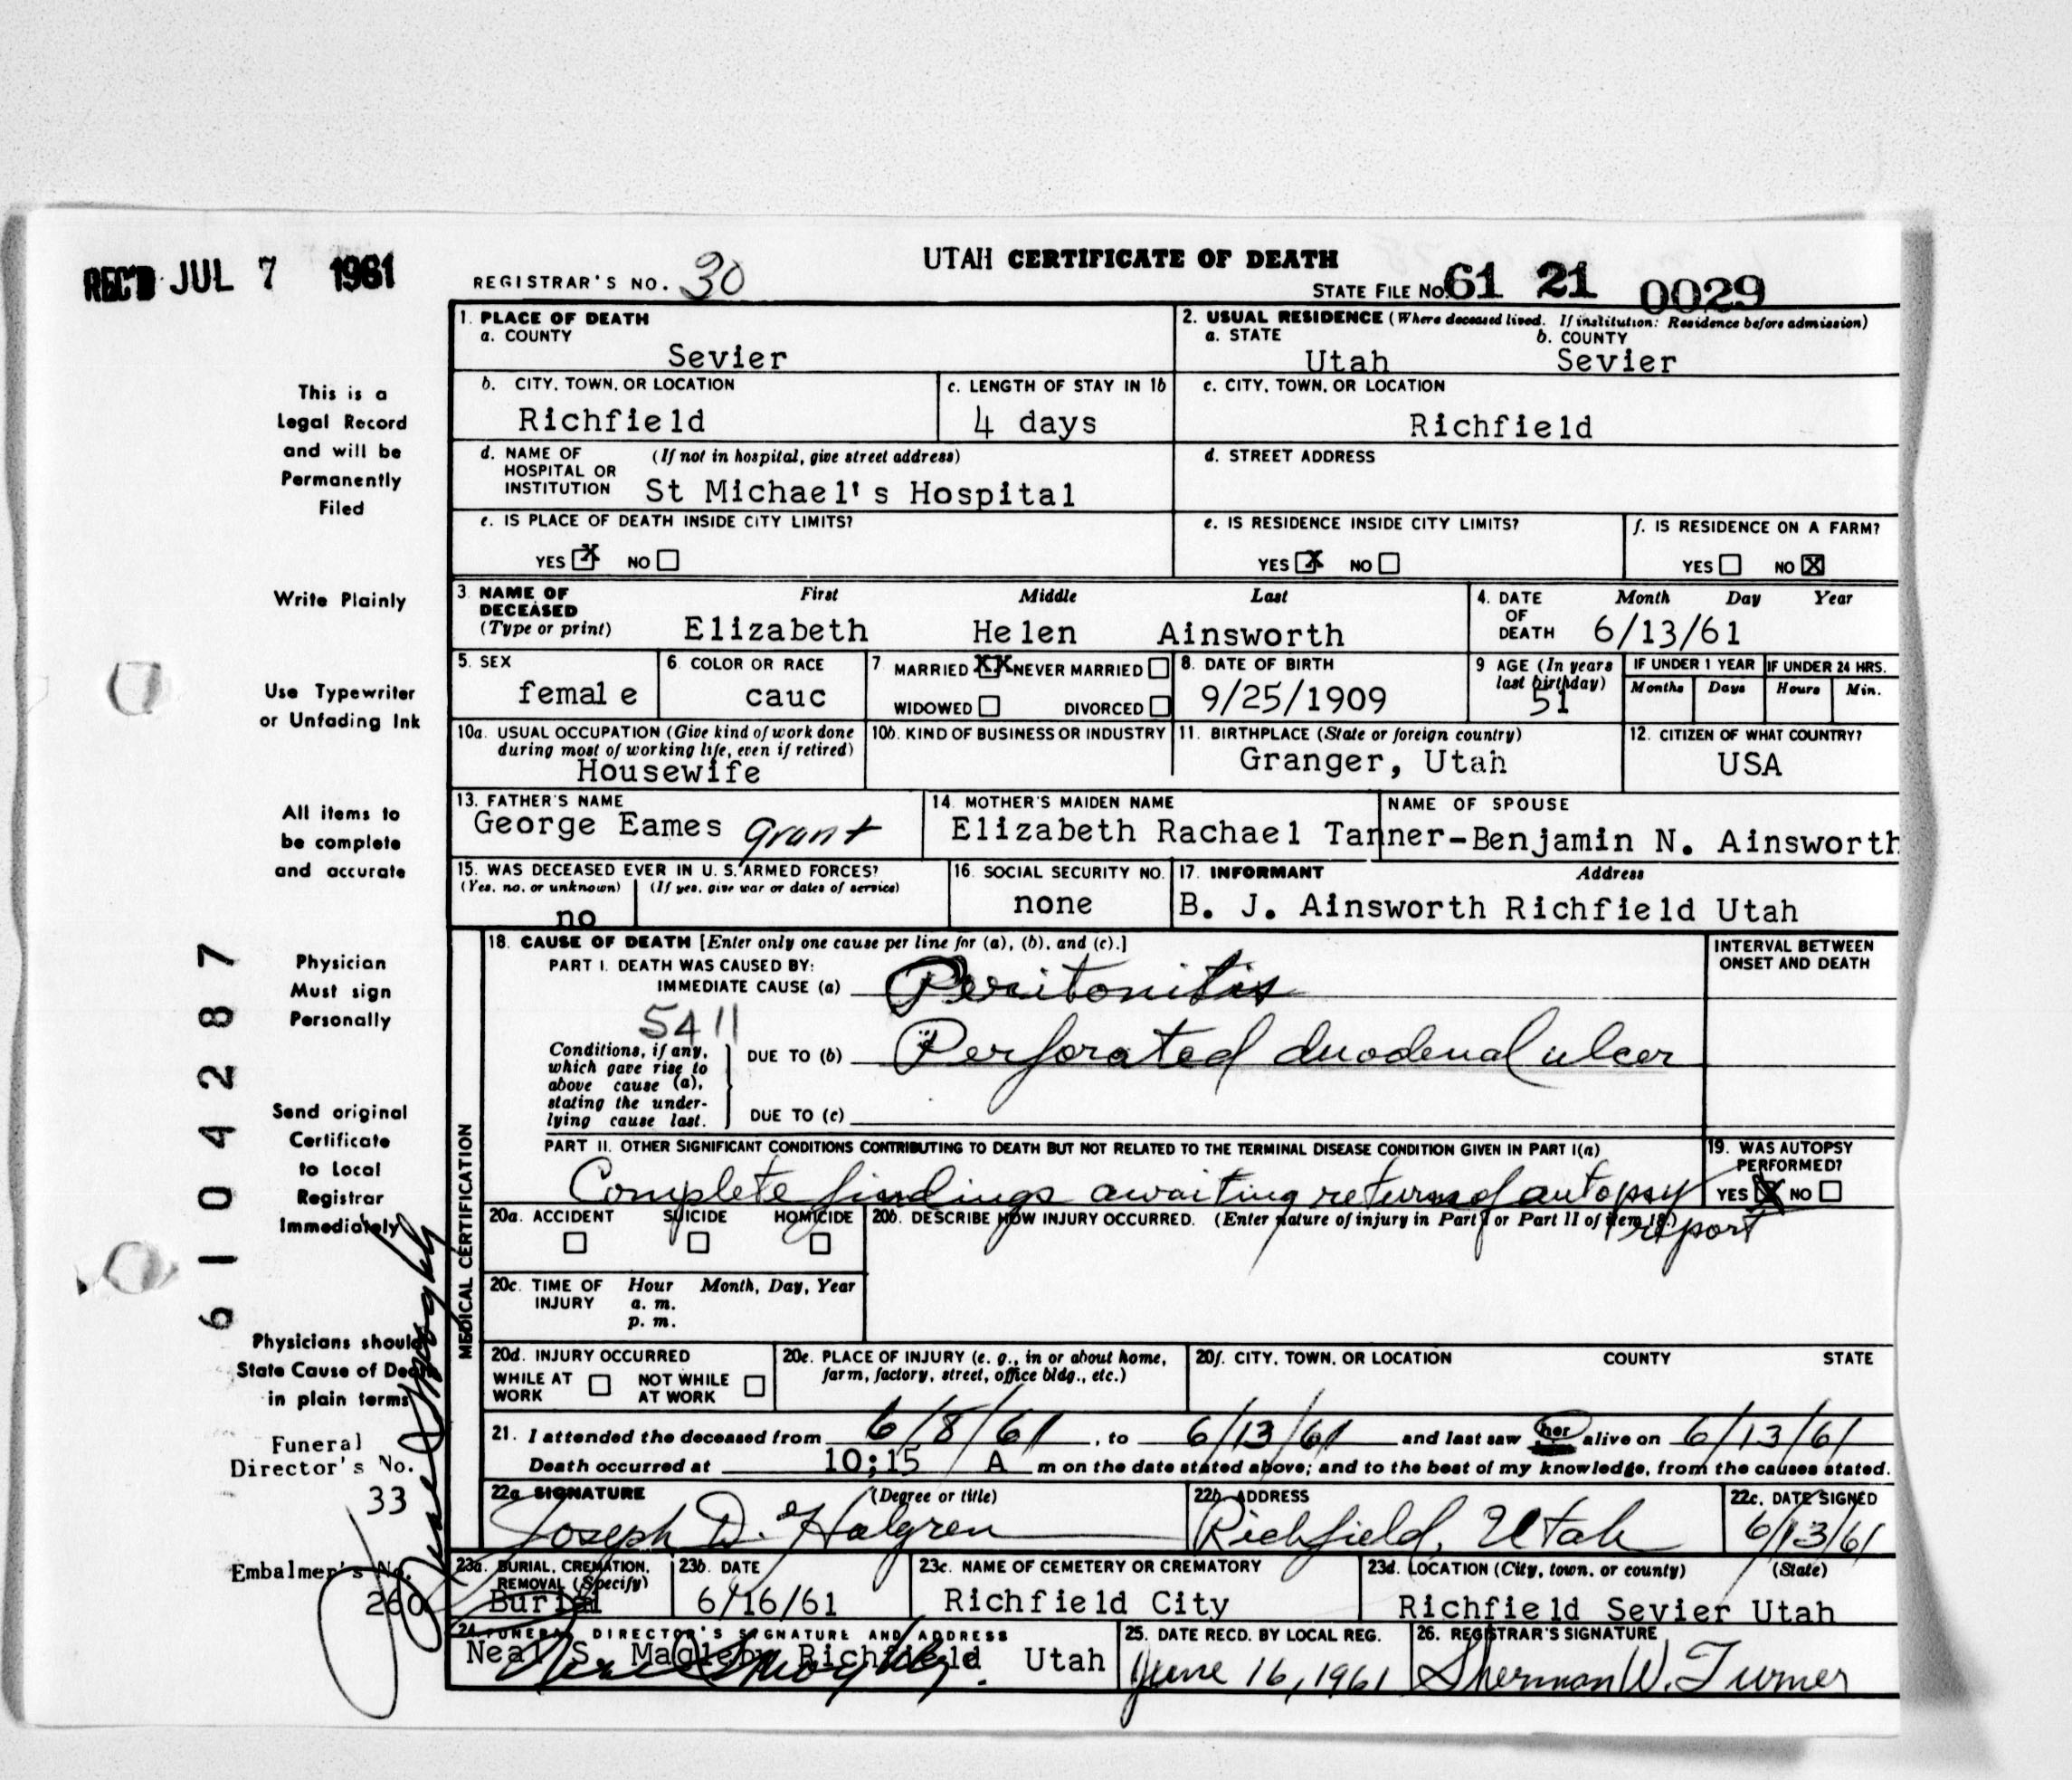 REC'D JUL 7 1961
UTAH CERTIFICATE OF DEATH
REGISTRAR'S NO. 30
STATE FILE NO. 61 21 0029
1. PLACE OF DEATH
a. COUNTY
Sevier
2. USUAL RESIDENCE (Where deceased lived. If institution: Residence before admission)
a. STATE b. COUNTY
Utah Sevier
b. CITY, TOWN, OR LOCATION
Richfield
c. LENGTH OF STAY IN 1b
4 days
c. CITY, TOWN, OR LOCATION
Richfield
d. NAME OF HOSPITAL OR INSTITUTION (If not in hospital, give street address)
St Michael's Hospital
d. STREET ADDRESS
e. IS PLACE OF DEATH INSIDE CITY LIMITS?
YES X NO
e. IS RESIDENCE INSIDE CITY LIMITS?
YES X NO
f. IS RESIDENCE ON A FARM?
YES NO X
3. NAME OF DECEASED (Type or print) First Middle Last
Elizabeth Helen Ainsworth
4. DATE OF DEATH Month Day Year
6/13/61
5. SEX
female
6. COLOR OR RACE
cauc
7 MARRIED XX NEVER MARRIED
WIDOWED DIVORCED
8. DATE OF BIRTH
9/25/1909
9 AGE (In years last birthday)
51
IF UNDER 1 YEAR IF UNDER 24 HRS.
Months Days Hours Min.
10a. USUAL OCCUPATION (Give kind of work done during most of working life, even if retired)
Housewife
10b. KIND OF BUSINESS OR INDUSTRY
11. BIRTHPLACE (State or foreign country)
Granger, Utah
12. CITIZEN OF WHAT COUNTRY?
USA
13. FATHER'S NAME
George Eames Grant
14. MOTHER'S MAIDEN NAME NAME OF SPOUSE
Elizabeth Rachael Tanner-Benjamin N. Ainsworth
15. WAS DECEASED EVER IN U. S. ARMED FORCES?
(Yes, no, or unknown) (If yes, give war or dates of service)
no
16. SOCIAL SECURITY NO.
none
17. INFORMANT Address
B. J. Ainsworth Richfield Utah
MEDICAL CERTIFICATION
18. CAUSE OF DEATH [Enter only one cause per line for (a), (b), and (c).]
PART I. DEATH WAS CAUSED BY:
IMMEDIATE CAUSE (a) Peritonitis
INTERVAL BETWEEN ONSET AND DEATH
5411
Conditions, if any, which gave rise to above cause (a), stating the underlying cause last.
DUE TO (b) Perforated duodenal ulcer
DUE TO (c)
PART II. OTHER SIGNIFICANT CONDITIONS CONTRIBUTING TO DEATH BUT NOT RELATED TO THE TERMINAL DISEASE CONDITION GIVEN IN PART I(a)
Complete findings awaiting return of autopsy report
19. WAS AUTOPSY PERFORMED?
YES X NO
20a. ACCIDENT SUICIDE HOMICIDE
20b. DESCRIBE HOW INJURY OCCURRED. (Enter nature of injury in Part I or Part II of item 18.)
20c. TIME OF INJURY Hour Month, Day, Year
a. m.
p. m.
20d. INJURY OCCURRED
WHILE AT WORK NOT WHILE AT WORK
20e. PLACE OF INJURY (e. g., in or about home, farm, factory, street, office bldg., etc.)
20f. CITY, TOWN, OR LOCATION COUNTY STATE
21. I attended the deceased from 6/8/61, to 6/13/61 and last saw her alive on 6/13/61
Death occurred at 10;15 A m on the date stated above; and to the best of my knowledge, from the causes stated.
22a SIGNATURE (Degree or title)
Joseph D. Halgren
22b. ADDRESS
Richfield, Utah
22c. DATE SIGNED
6/13/61
23a. BURIAL, CREMATION, REMOVAL (Specify)
Burial
23b. DATE
6/16/61
23c. NAME OF CEMETERY OR CREMATORY
Richfield City
23d. LOCATION (City, town, or county) (State)
Richfield Sevier Utah
24. FUNERAL DIRECTOR'S SIGNATURE AND ADDRESS
Neal S. Magleby Richfield Utah
25. DATE RECD. BY LOCAL REG.
June 16, 1961
26. REGISTRAR'S SIGNATURE
Sherman W. Turner
This is a
Legal Record
and will be
Permanently
Filed
Write Plainly
Use Typewriter
or Unfading Ink
All items to
be complete
and accurate
Physician
Must sign
Personally
Send original
Certificate
to Local
Registrar
Immediately
Physicians should
State Cause of Death
in plain terms
Funeral
Director's No.
33
Embalmer's No.
260
6104287